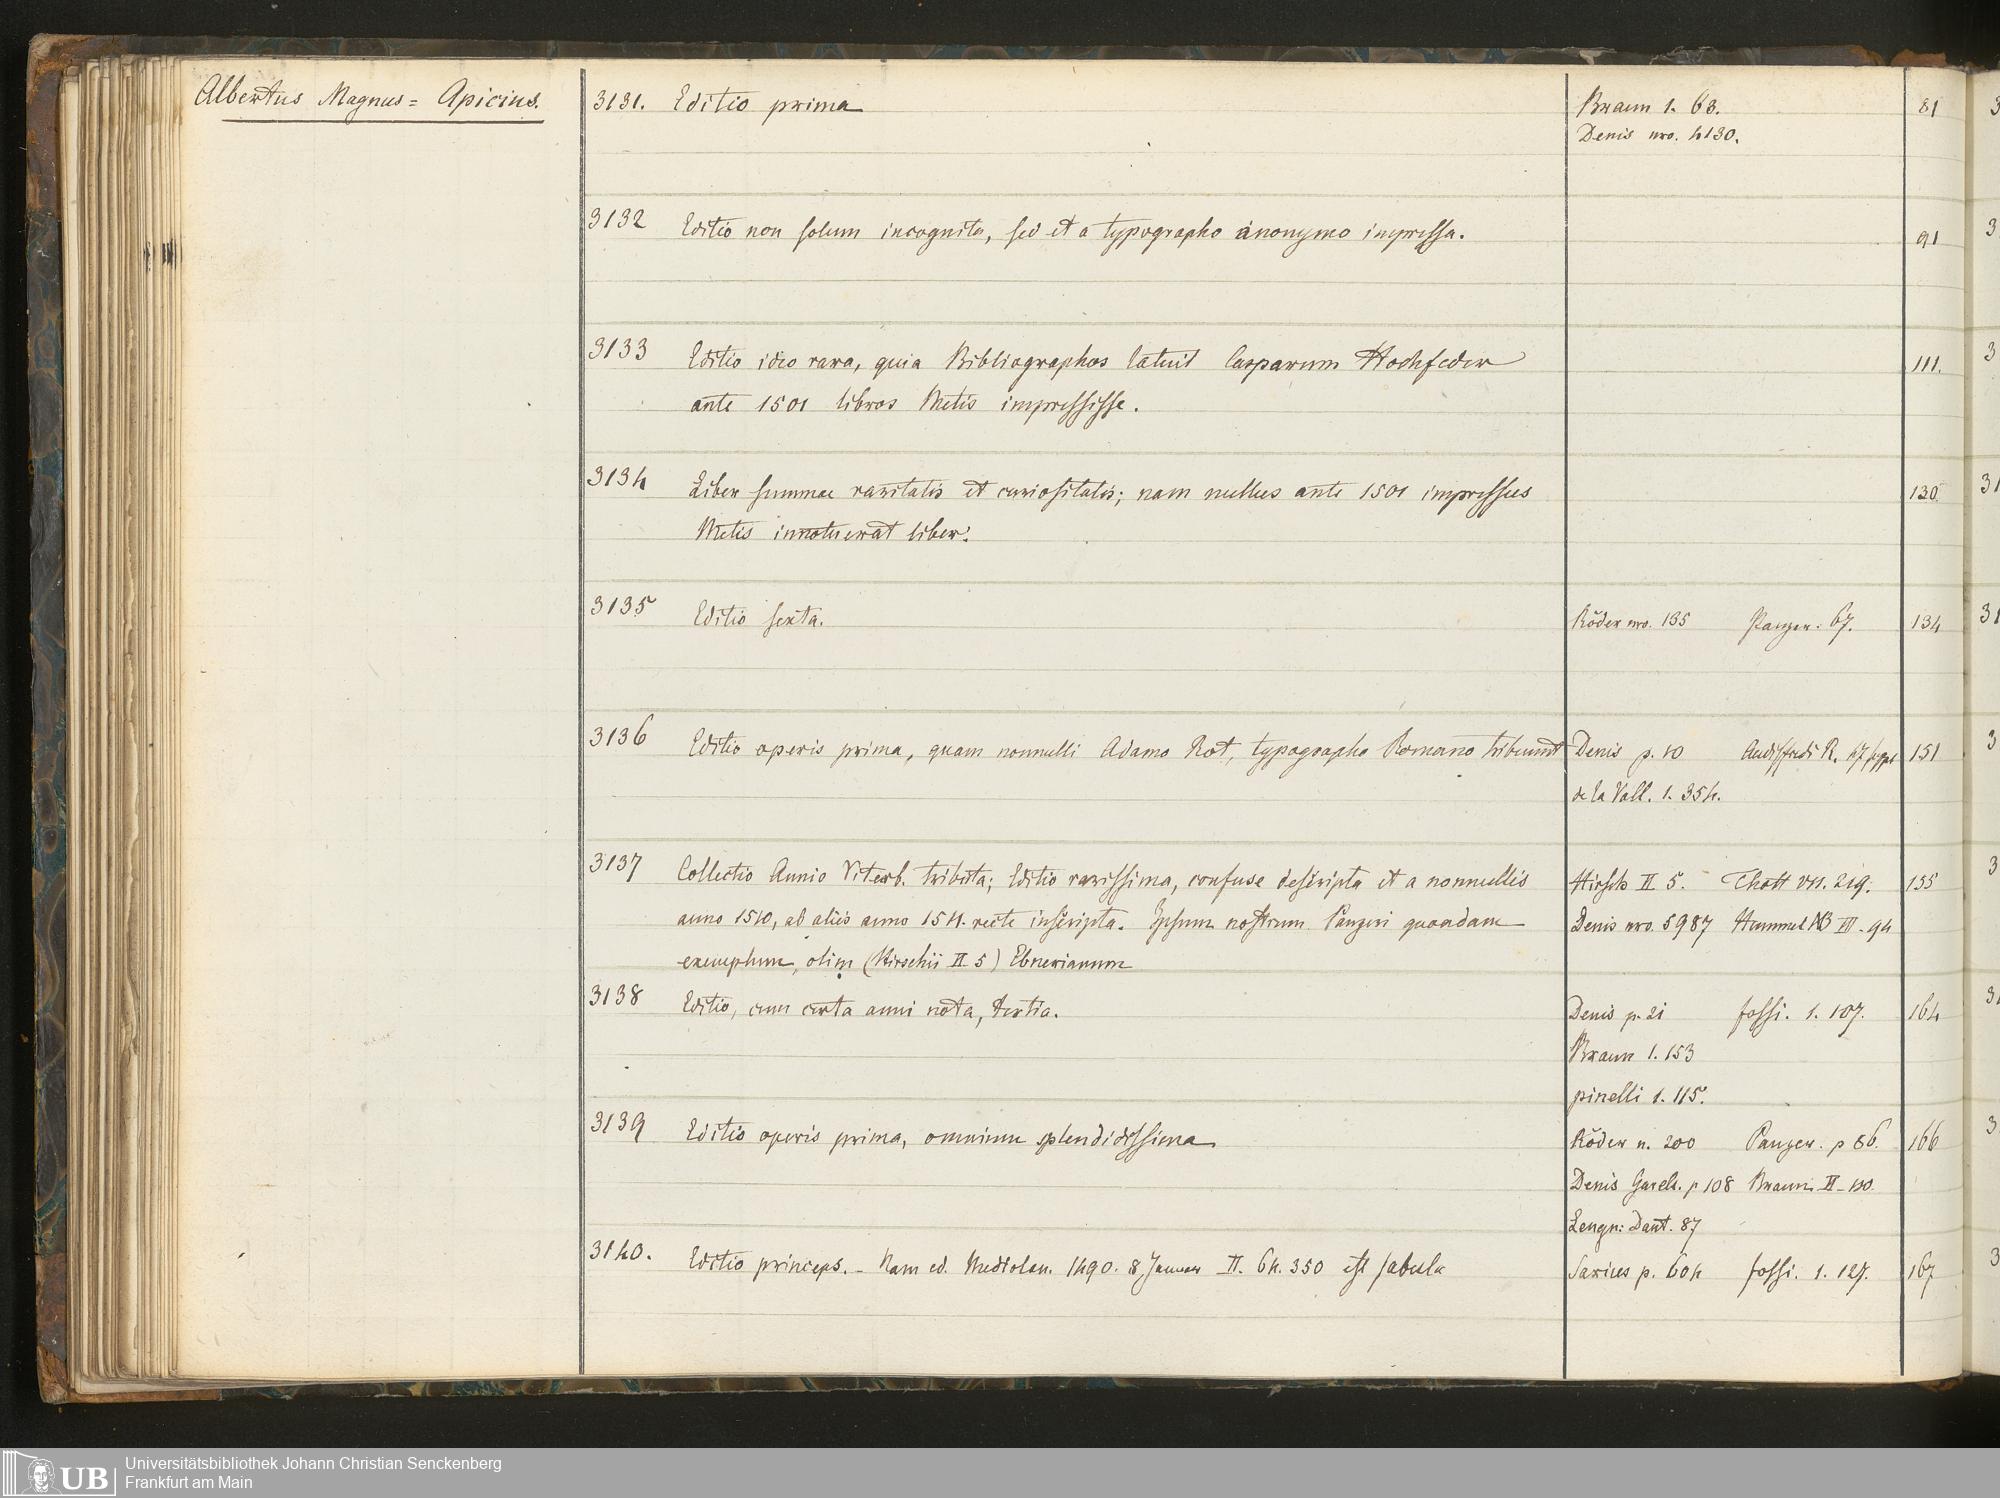 Albertus Magnus = Apicius.
3131. Editio prima
Braun 1. 63.
81
Denis nro. 4130.
3132 Editio non solum incognita, sed et a typographo anonymo impressa.
91
3133 Editio ideo rara, quia Bibliographos latuit Casparum Hochfeder
111.
ante 1501 libros Metis impressisse.
3134 Liber summae raritatis et curiositatis; nam nullus ante 1501 impressus
130
Metis innotuerat liber.
3135 Editio sexta.
Röder nro. 135 Panzer. 67.
134
3136 Editio operis prima, quam nonnulli Adamo Rot, typographo Romano tribuunt
Denis p. 10 Audiffredi R.
151
de la Vall. 1. 354.
3137 Collectio Annio Viterb. tributa; Editio rarissima, confuse descripta et a nonnullis
Hirsch II 5. Thott VII. 219.
155
anno 1510, ab aliis anno 1511. recte inscripta. Ipsum nostrum Panzeri quondam
Denis nro. 5987 Hummel NB III - 94
exemplum, olim (Hirschii II 5) Ebnerianum
3138 Editio, cum certa anni nota, tertia.
Denis p. 21 fossi. 1. 107.
164
Braun 1. 153
pinelli 1. 115.
3139 Editio operis prima, omnium splendidissima
Röder n. 200 Panzer. p 86.
166
Denis Garel. p 108 Braun II - 130
Lengn: Dant. 87
3140. Editio princeps. - Nam ed. Mediolan. 1490. 8 Januar II. 64. 350 est fabula
Saxius p. 604 fossi. 1. 127.
167
UB
Universitätsbibliothek Johann Christian Senckenberg
Frankfurt am Main